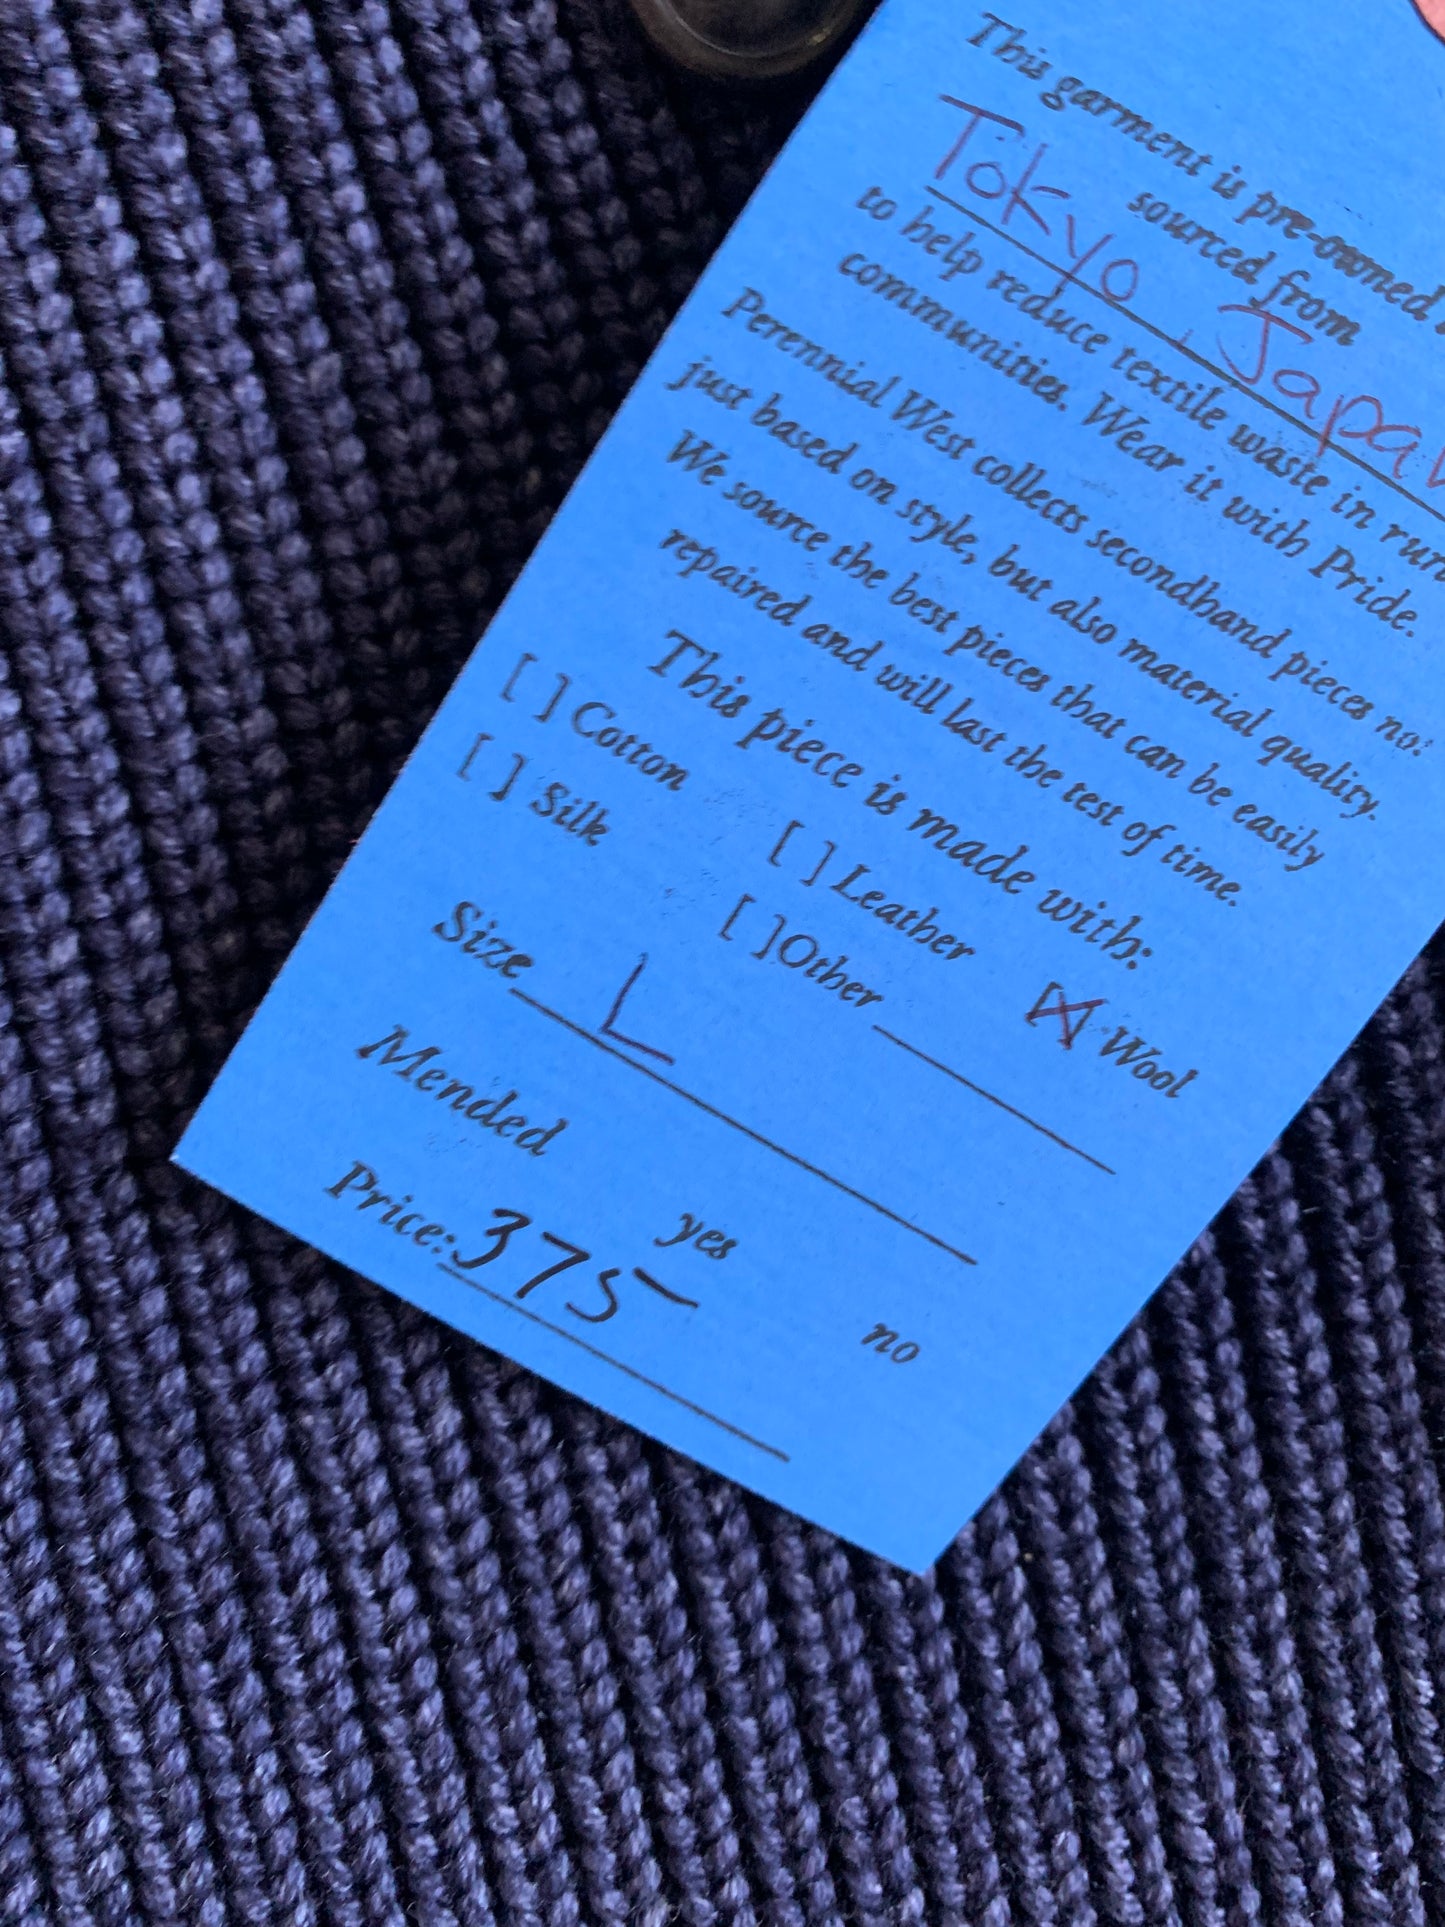 This garment is pre-owned
sourced from
Tokyo, Japan
to help reduce textile waste in rural
communities. Wear it with Pride.
Perennial West collects secondhand pieces not
just based on style, but also material quality.
We source the best pieces that can be easily
repaired and will last the test of time.
This piece is made with:
[ ] Cotton [ ] Leather [X] Wool
[ ] Silk [ ]Other
Size L
Mended yes no
Price: 375-